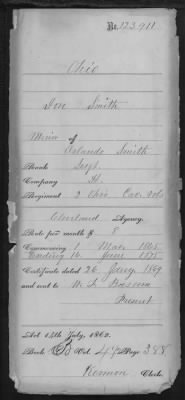 No. 123.911
Ohio
Smith
of
Orlando Smith
Rank Sergt.
Company
Regiment 2 Ohio Cav. Vols
Cleveland Agency.
Rate per month $ 8
Commencing 1 Mar. 1865
Ending 16 June 1875
Certificate dated 26. Jany. 1869
and sent to W. L.
Present
Act 14th July, 1862.
Book B Vol. 4 Page 388
Clerk.